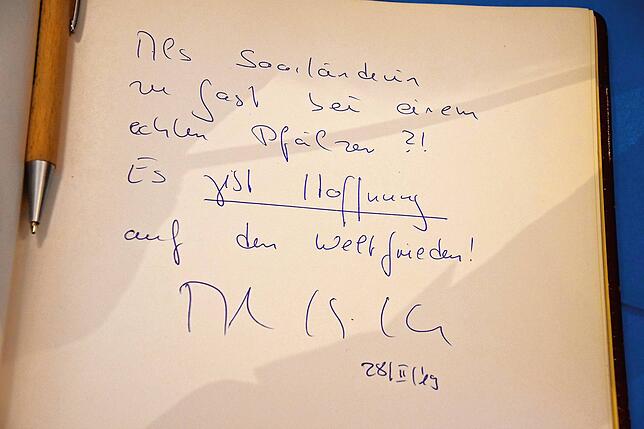 Als Saarländerin
zu Gast bei einem
echten Pfälzer ?!
Es gibt Hoffnung
auf den Weltfrieden!
28/II/'19